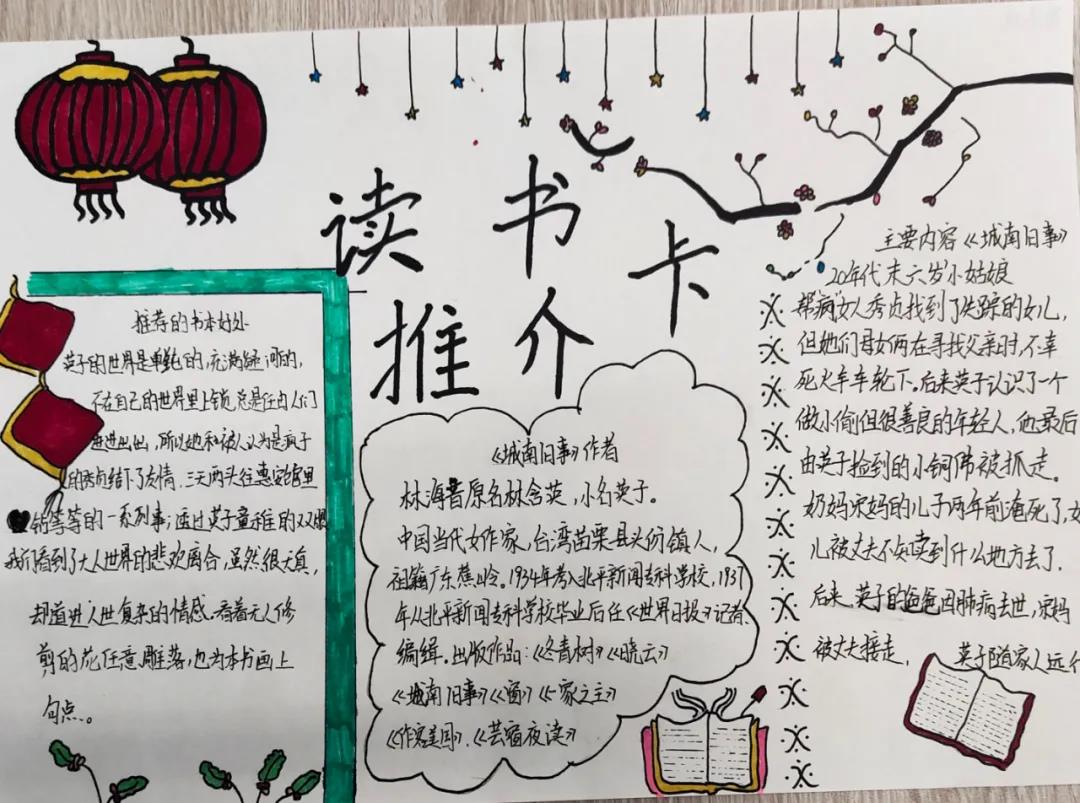 读书
推介卡
推荐的书本好处
英子的世界是单纯的,充满疑问的,
不在自己的世界里上锁总是任由人们
进进出出,所以她和被人认为是疯子
的秀贞结下了友情.三天两头往惠安馆里
钻等等的一系列事;透过英子童稚的双眼
我们看到了大人世界的悲欢离合,虽然很天真,
却道进人世复杂的情感.看着无人修
剪的花任意雕落,也为本书画上
句点。
《城南旧事》作者
林海音原名林含英,小名英子。
中国当代女作家,台湾苗栗县头份镇人,
祖籍广东蕉岭。1934年考入北平新闻专科学校.1937
年从北平新闻专科学校毕业后任《世界日报》记者.
编缉.出版作品:《冬青树》《晓云》
《城南旧事》《窗》《一家之主》
《作客美国》、《芸窗夜读》
主要内容《城南旧事》
20年代末六岁小姑娘
帮病女人秀贞找到了失踪的女儿,
但她们母女俩在寻找父亲时,不幸
死火车车轮下.后来英子认识了一个
做小偷但很善良的年轻人,他最后
由英子捡到的小铜佛被抓走。
奶妈宋妈的儿子两年前淹死了,女
儿被丈夫不知卖到什么地方去了.
后来.英子的爸爸因肺病去世,宋妈
被丈夫接走,英子随家人远行